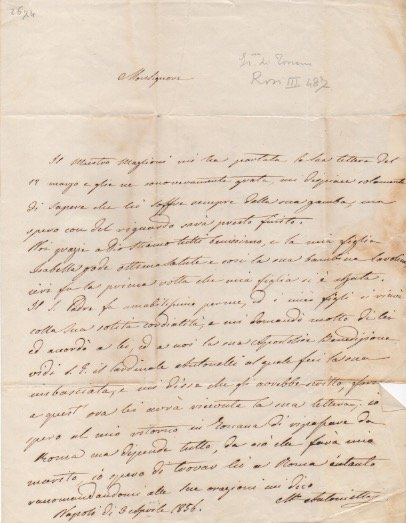 2524
Rosi III 487
Monsignore
Il Maestro Maglioni mi ha portata la sua lettera del
18 marzo e gliene sono veramente grata, mi dispiace solamente
di sapere che lei soffre sempre della sua gamba, ma
spero con del riguardo sarà presto finito.
Noi grazie a Dio stiamo tutti benissimo, e la mia figlia
Isabella gode ottima salute e così la sua bambina
per la prima volta che mia figlia si è
Il S. Padre fu amabilissimo per me, ed i miei figli ci
colla sua solita cordialità, e mi domandò molto di lei
ed accordò a lei, ed a noi la sua Apostolica Benedizione,
vidi S. E. il Cardinale Antonelli al quale feci la sua
imbasciata, e mi disse che gli avrebbe scritto, forse
a quest'ora lei avrà ricevuta la sua lettera, io
spero al mio ritorno in Toscana di ripassare da
Roma ma dipende tutto, da ciò che farà mio
marito, io spero di trovar lei a Roma e intanto
raccomandandomi alle sue orazioni mi dico
Napoli di 3 Aprile 1856. Ma. Antonietta